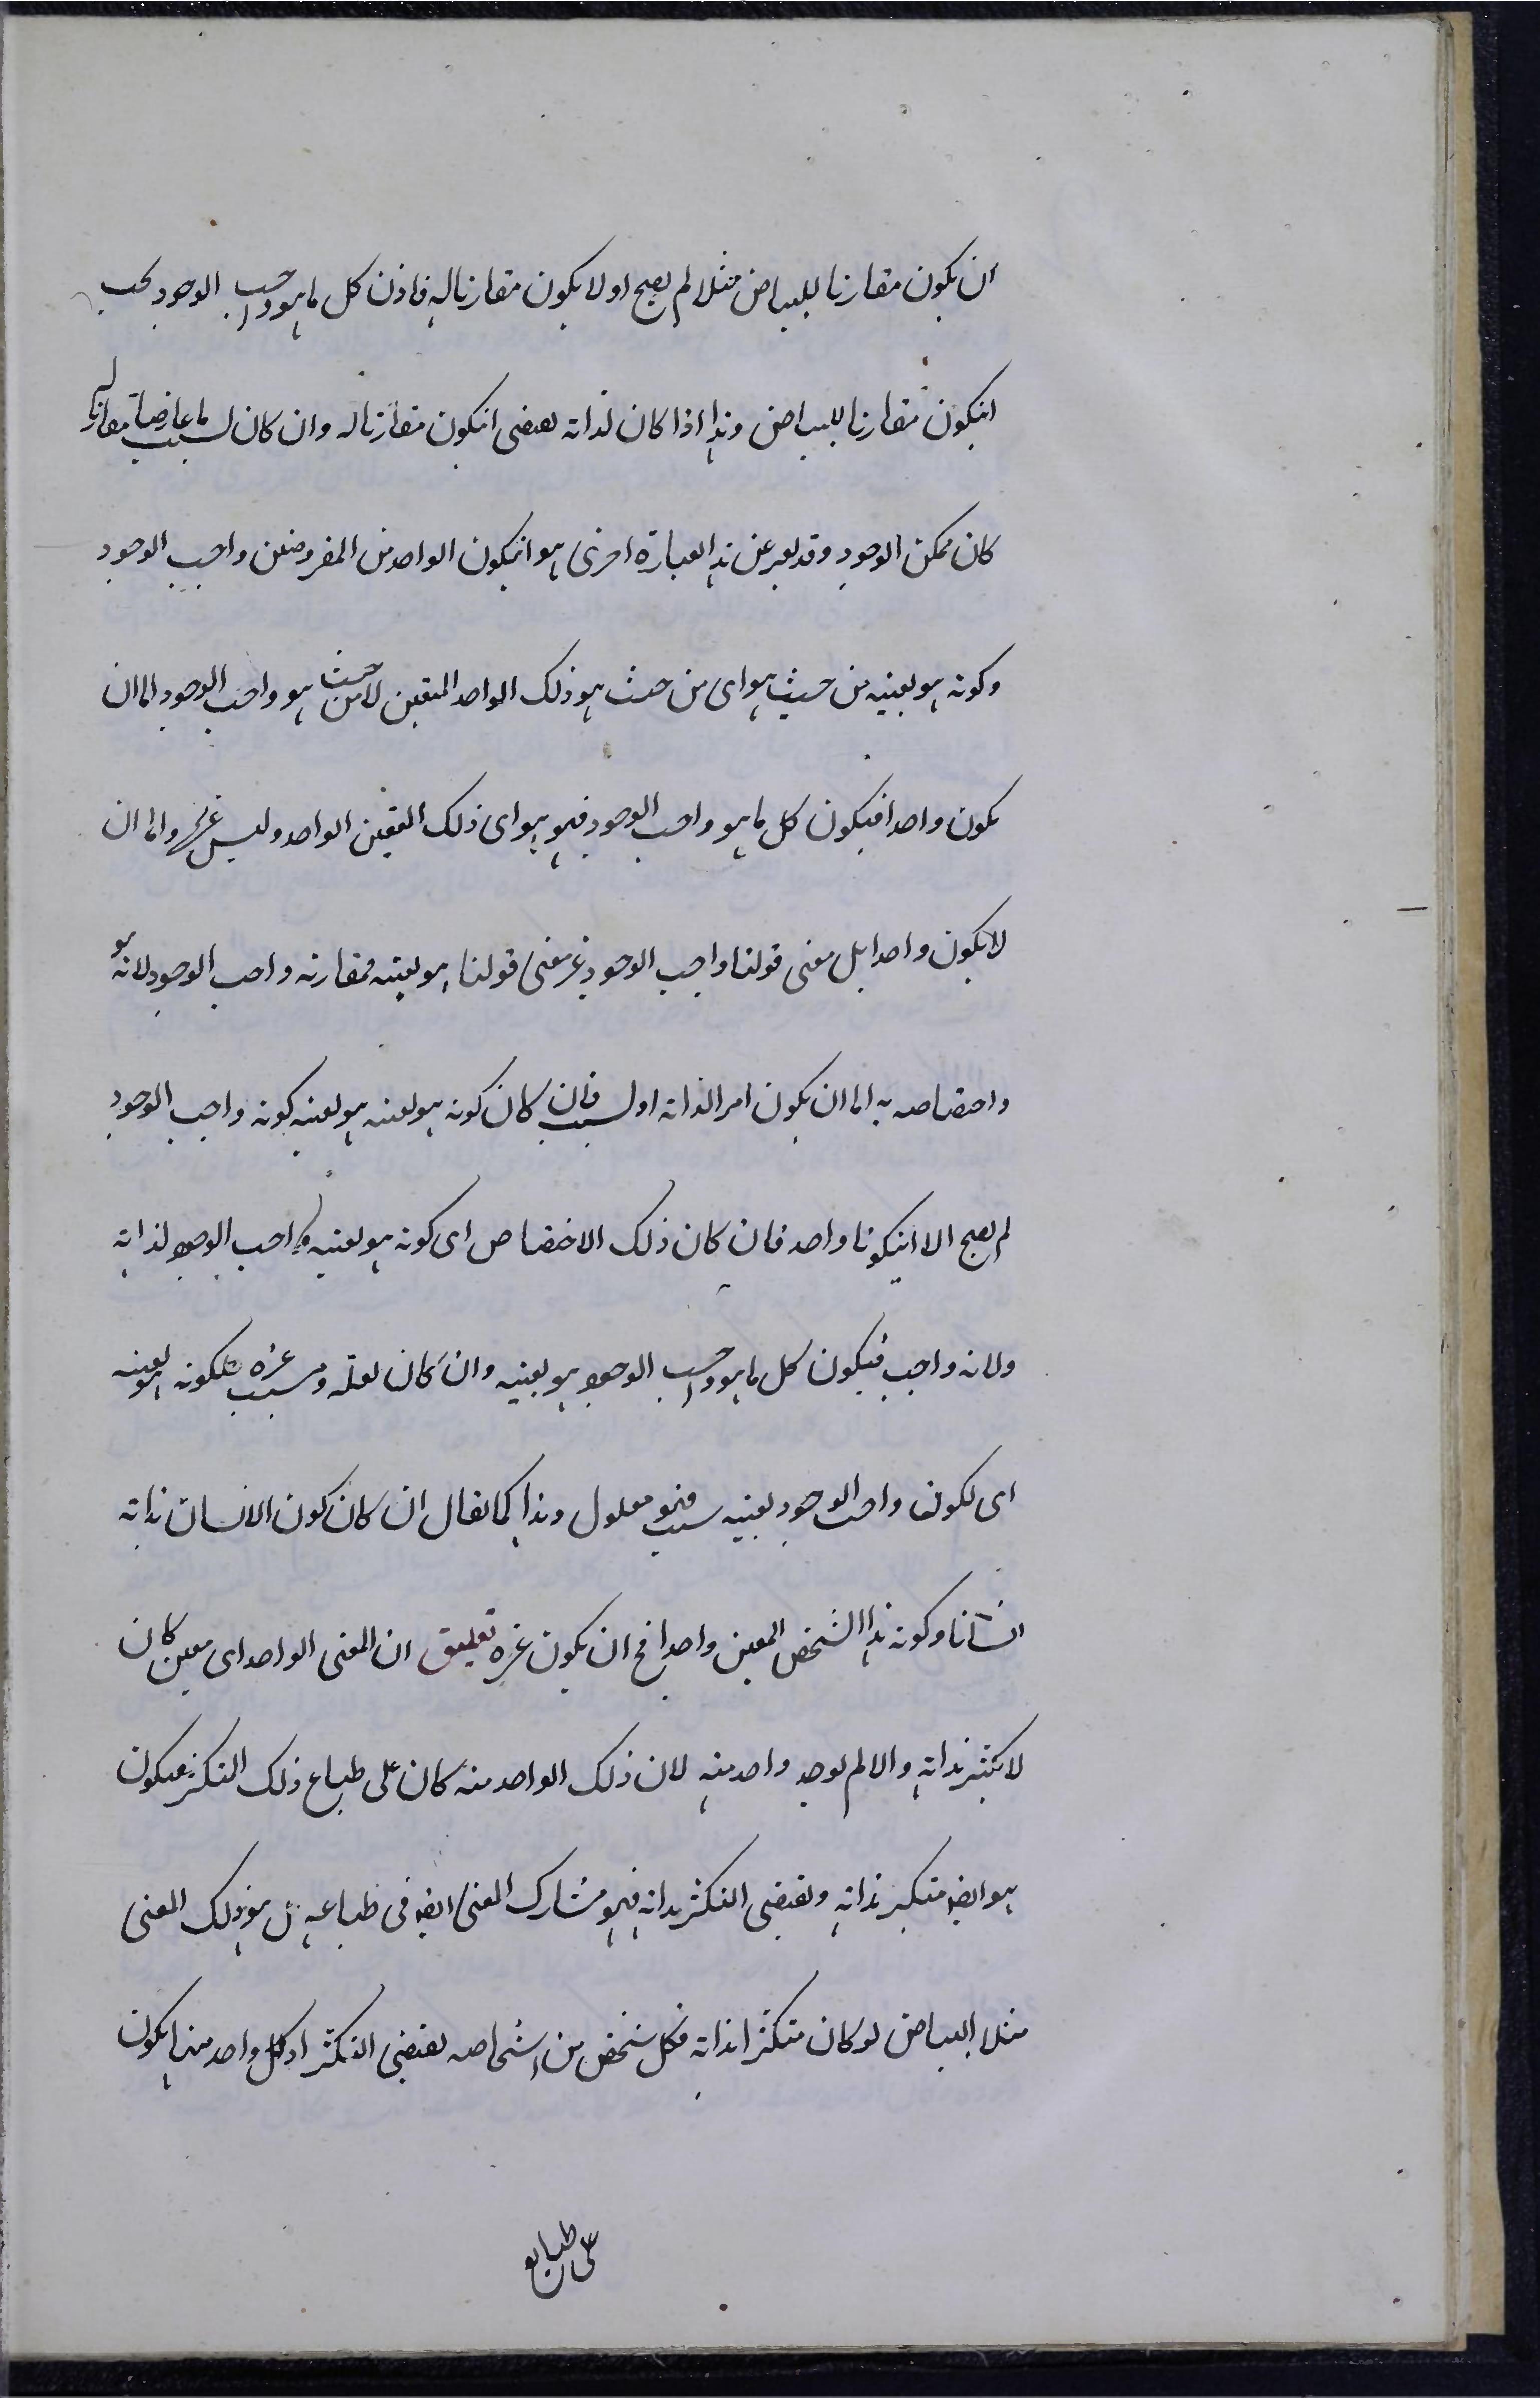 ان يكون مقارنا للبياض مثلا لم يصح او لا يكون مقارنا له فاذن كل ما هو واجب الوجود يجب
انيكون مقارنا للبياض وهذا اذا كان لذاته يقتضى انيكون مقارنا له وان كان لسبب ما عارضا مقارنا له
كان ممكن الوجود وقد يعبر عن هذا بعبارة اخرى هو انيكون الواحد من المفروضين واجب الوجود
وكونه هو بعينيه من حيث هو اى من حيث هو ذلك الواحد المتعين لا من حيث هو واجب الوجود اما ان
يكون واحدا فيكون كل ما هو واجب الوجود فهو هو اى ذلك المتعين الواحد وليس غيره واما ان
لا يكون واحدا بل معنى قولنا واجب الوجود غير معنى قولنا هو بعينه فمقارنه واجب الوجود لانه هو
واختصاصه به اما ان يكون امر الذاته او لسبب فان كان كونه هو بعينه هو بعينه كونه واجب الوجود
لم يصح الا انيكونا واحد فان كان ذلك الاختصاص اى كونه هو بعينيه واجب الوجود لذاته
ولانه واجب فيكون كل ما هو واجب الوجود هو بعينيه وان كان لعلة وسبب غيره فلكونه هو بعينه
اى لكون واجب الوجود بعينيه سبب فهو معلول وهذا كما يقال ان كان كون الانسان بذاته
انسانا وكونه هذا الشخص المعين واحدا فح ان يكون غيره تعليق ان المعنى الواحد اى معين كان
لا يكثر بذاته والا لم يوجد واحد منه لان ذلك الواحد منه كان على طباع ذلك التكثر فيكون
هو ايضه متكثر بذاته ويقتضى التكثر بذاته فهو مشارك المعنى ايضه فى طباعه بل هو ذلك المعنى
مثلا البياض لو كان متكثرا بذاته فكل شخص من اشخاصه يقتضى التكثر اذ كل واحد منها يكون
على طبايع